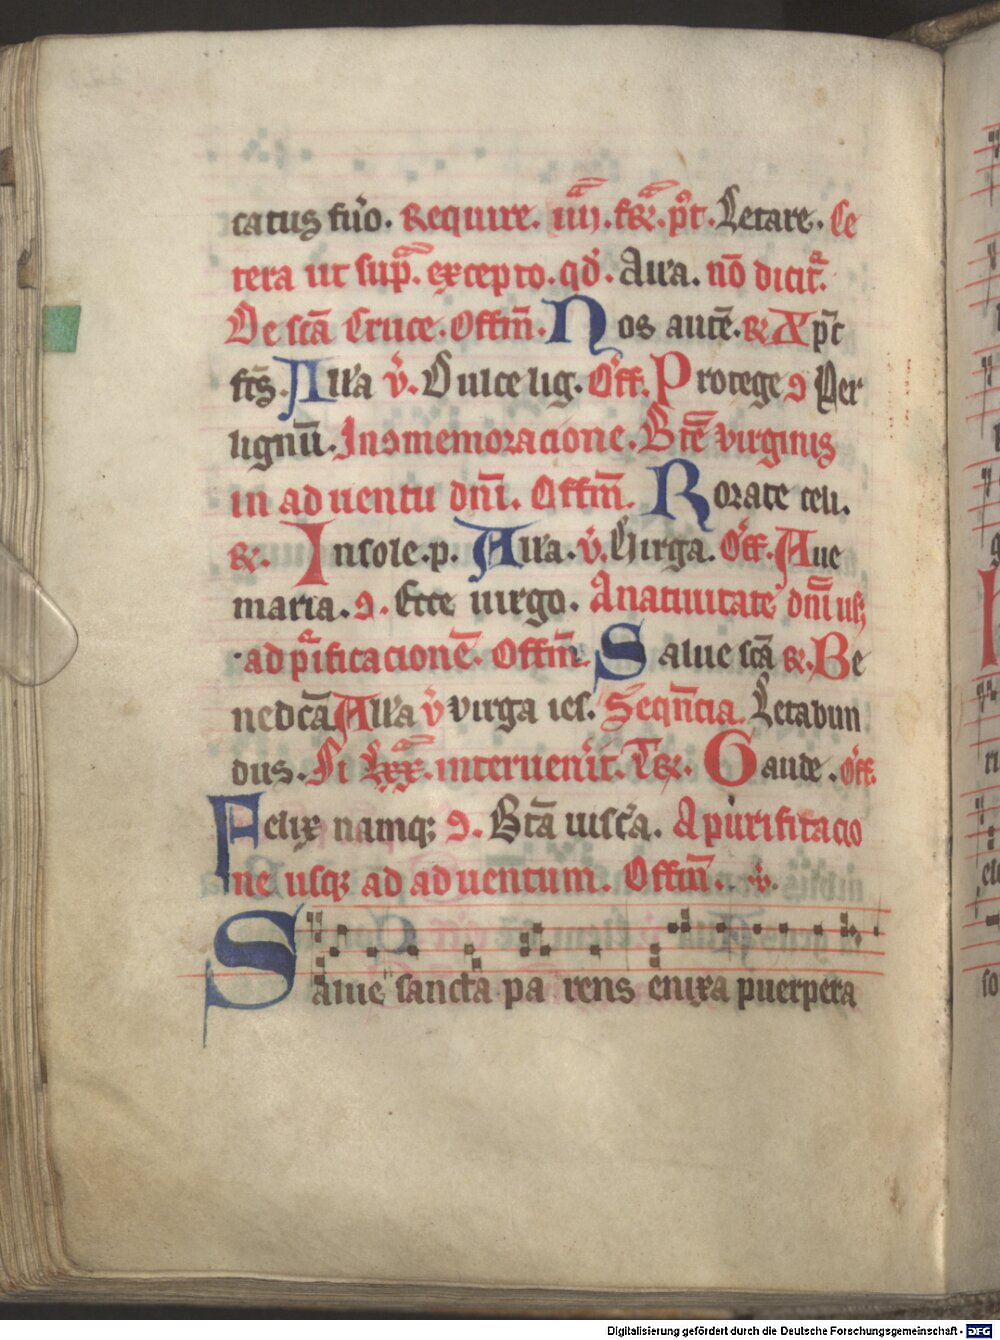 catus fũo. Require. iiij. fr̃. pꝰt. Letare. Ce
tera ut sup̃. excepto. qđ. Aw̃a. nō dicit̃.
De scā Cruce. Offm̄. Nos autē. R̃ Xp̄c
fc̄s. All'a v̉. Dulce lig. Off. Protege ꝯ Per
lignū. In ꝯmemoracione. Btē virginis
in aduentu dnī. Offm̄. Rorate celi.
R̃. In sole. p. All'a. v̉. Virga. Off. Aue
maria. ꝯ. Ecce uirgo. A natiuitate dnī usꝗ
ad p̃ificacionē. Offm̄. Salue scā R̃. Be
nedcā All'a v̉ virga ies. Seqn̄cia. Letabun
dus. Si lxx̃. interuen̉it. Tr̃. Gaude. Off.
Felix namqꝫ ꝯ. Btā uisc̃a. A purificacio
ne usqꝫ ad aduentum. Offm̄.
Salue sancta parens enixa puerpera
Digitalisierung gefördert durch die Deutsche Forschungsgemeinschaft - DFG